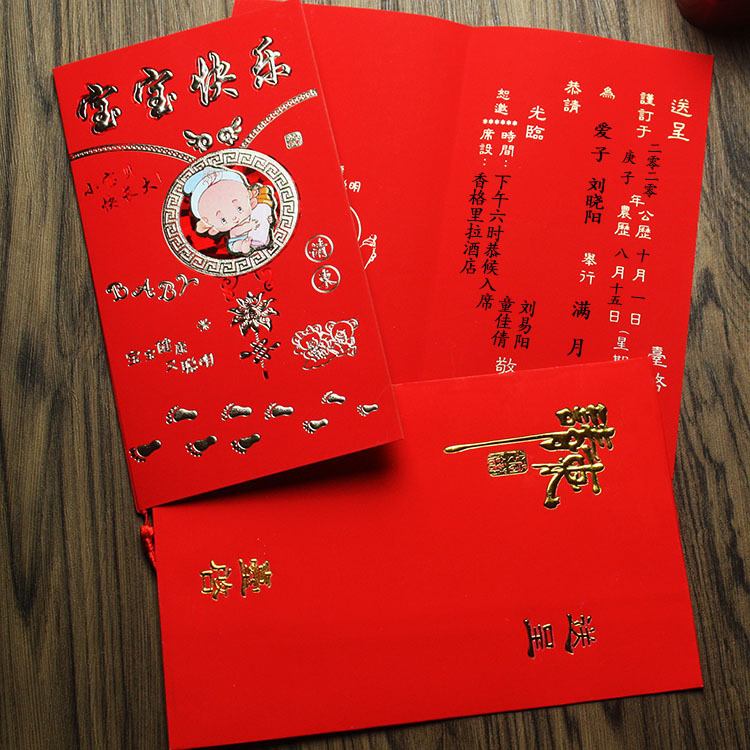 宝宝快乐
快长大!
请柬
BABY
宝宝健康
又聪明
明
送呈 臺
謹訂于 二零二零年 公歷 十月一日
庚子 農歷 八月十五日(星期
為 爱子 刘晓阳 舉行 满月
恭請
光臨
恕邀
******
時間:下午六时恭候入席
席設:香格里拉酒店
刘易阳
童佳倩
敬
請柬
臺啓
送呈